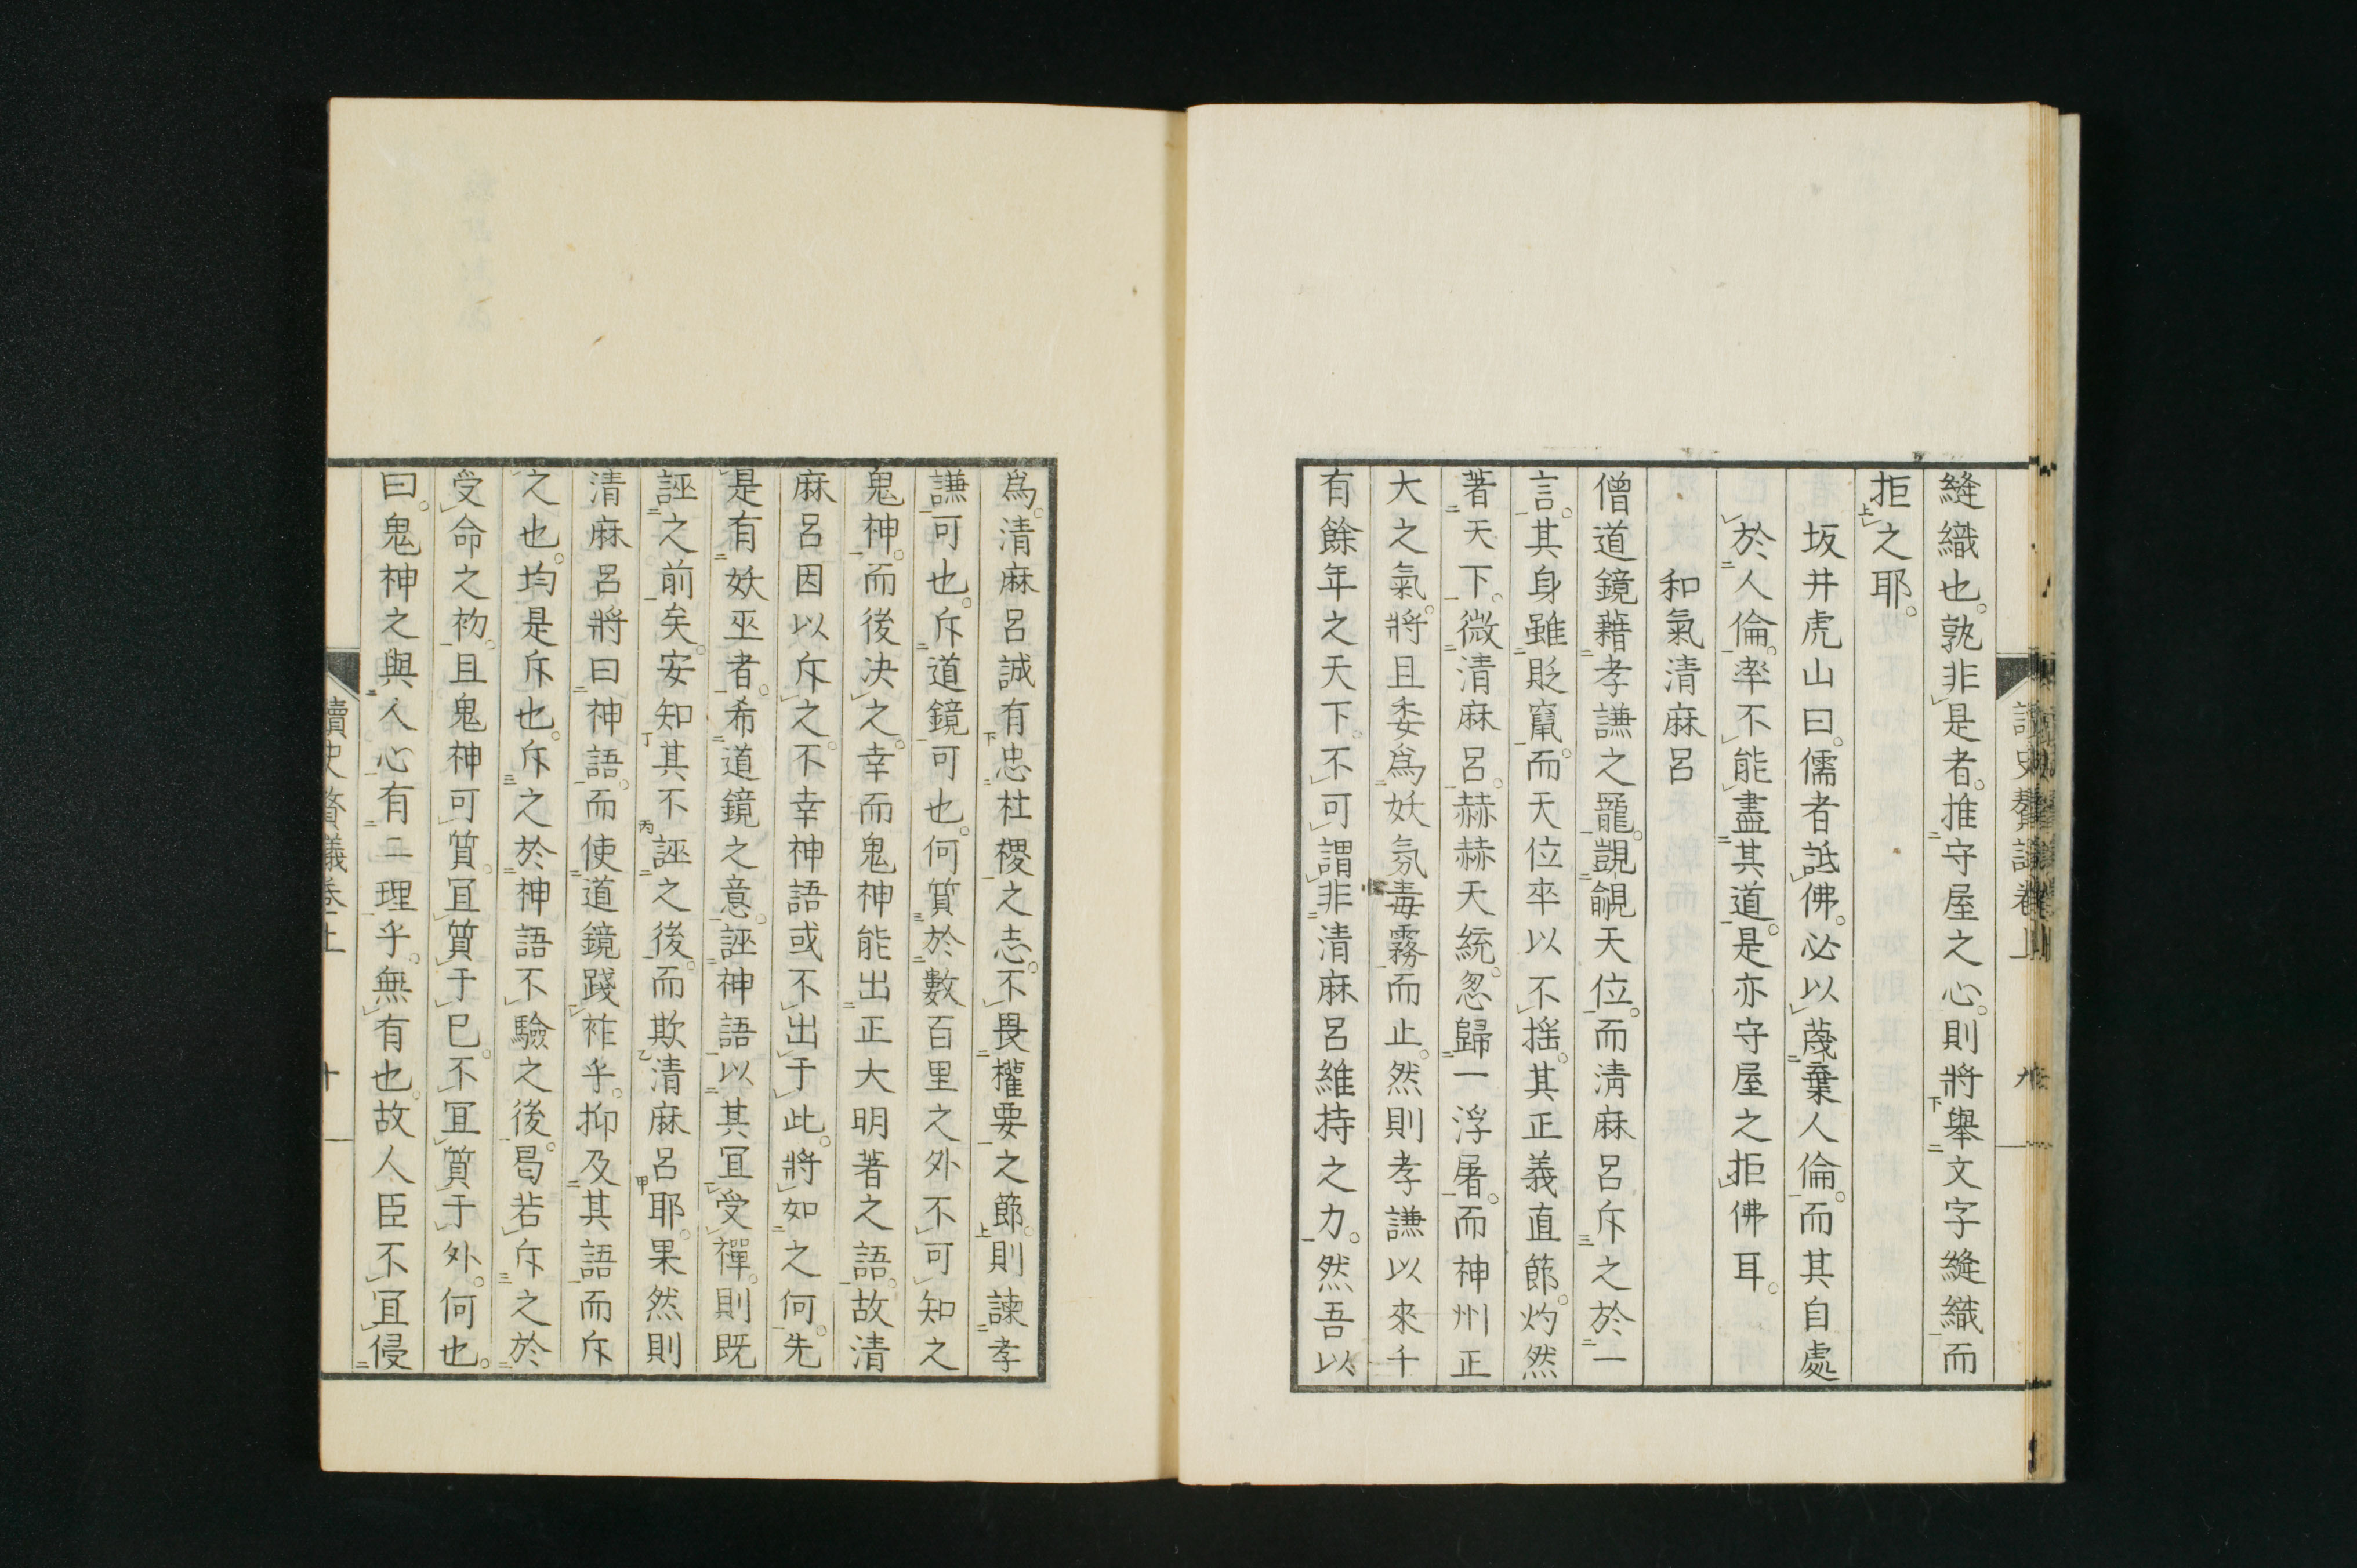 縫織也。孰非是者。推守屋之心。則將舉文字縫織而
拒之耶。
坂井虎山曰。儒者詆佛。必以蔑棄人倫。而其自處
於人倫。率不能盡其道。是亦守屋之拒佛耳。
和氣清麻呂
僧道鏡藉孝謙之寵。覬覦天位。而清麻呂斥之於一
言。其身雖貶竄。而天位卒以不搖。其正義直節。灼然
著天下。微清麻呂。赫赫天統。忽歸一浮屠。而神州正
大之氣。將且委爲妖氛毒霧而止。然則孝謙以來千
有餘年之天下。不可謂非清麻呂維持之力。然吾以
爲。清麻呂誠有忠社稷之志。不畏權要之節。則諫孝
謙可也。斥道鏡可也。何質於數百里之外不可知之
鬼神。而後決之。幸而鬼神能出正大明著之語。故清
麻呂因以斥之。不幸神語或不出于此。將如之何。先
是有妖巫者。希道鏡之意。誣神語以其冝受禪。則既
誣之前矣。安知其不誣之後。而欺清麻呂耶。果然則
清麻呂將曰神語。而使道鏡踐祚乎。抑及其語而斥
之也。均是斥也。斥之於神語不驗之後。曷若斥之於
受命之初。且鬼神可質。冝質于已。不冝質于外。何也。
曰。鬼神之與人心有二理乎。無有也。故人臣不冝侵
讀史贅議卷上
九
讀史贅議卷上
十